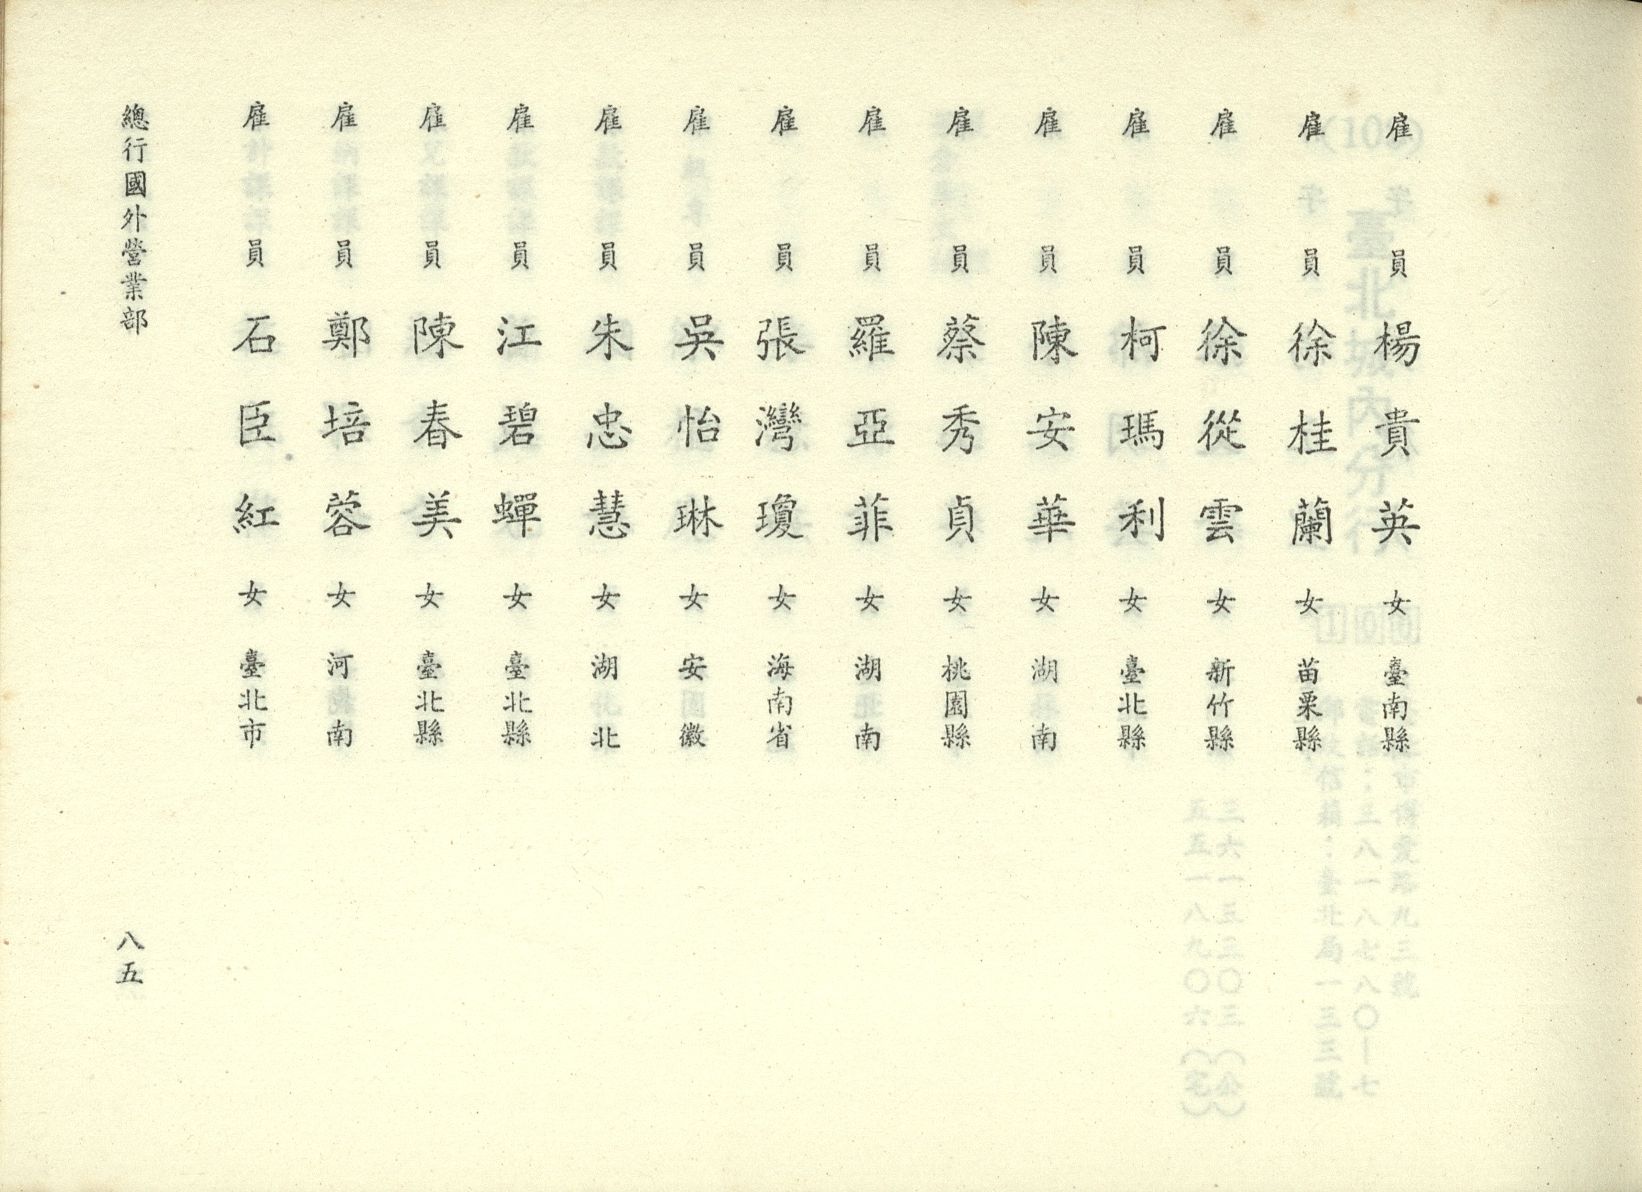 雇員 楊貴英 女 臺南縣
雇員 徐桂蘭 女 苗栗縣
雇員 徐從雲 女 新竹縣
雇員 柯瑪利 女 臺北縣
雇員 陳安華 女 湖南
雇員 蔡秀貞 女 桃園縣
雇員 羅亞菲 女 湖南
雇員 張灣瓊 女 海南省
雇員 吳怡琳 女 安徽
雇員 朱忠慧 女 湖北
雇員 江碧蟬 女 臺北縣
雇員 陳春美 女 臺北縣
雇員 鄭培蓉 女 河南
雇員 石臣紅 女 臺北市
總行國外營業部
八五